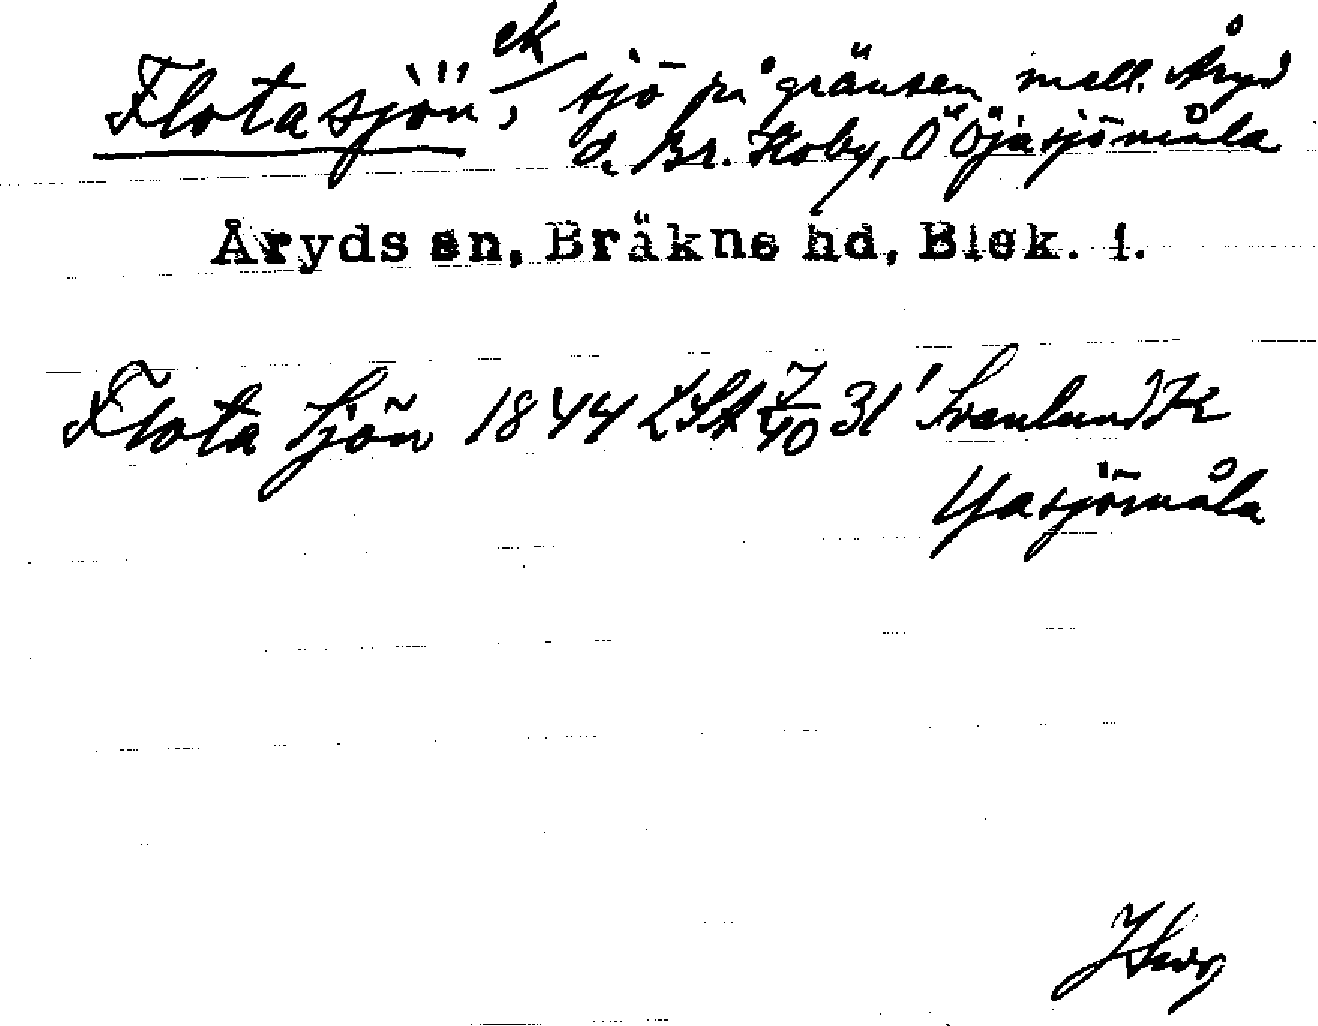 Flotasjön, ek sjö på gränsen mell. Åryd
o. Br. Hoby, Ö Öjasjömåla
Åryds sn, Bräkne hd, Blek. l.
Flota Sjön 1844 LSA 7/40 31' Svenlund K
Yasjömåla